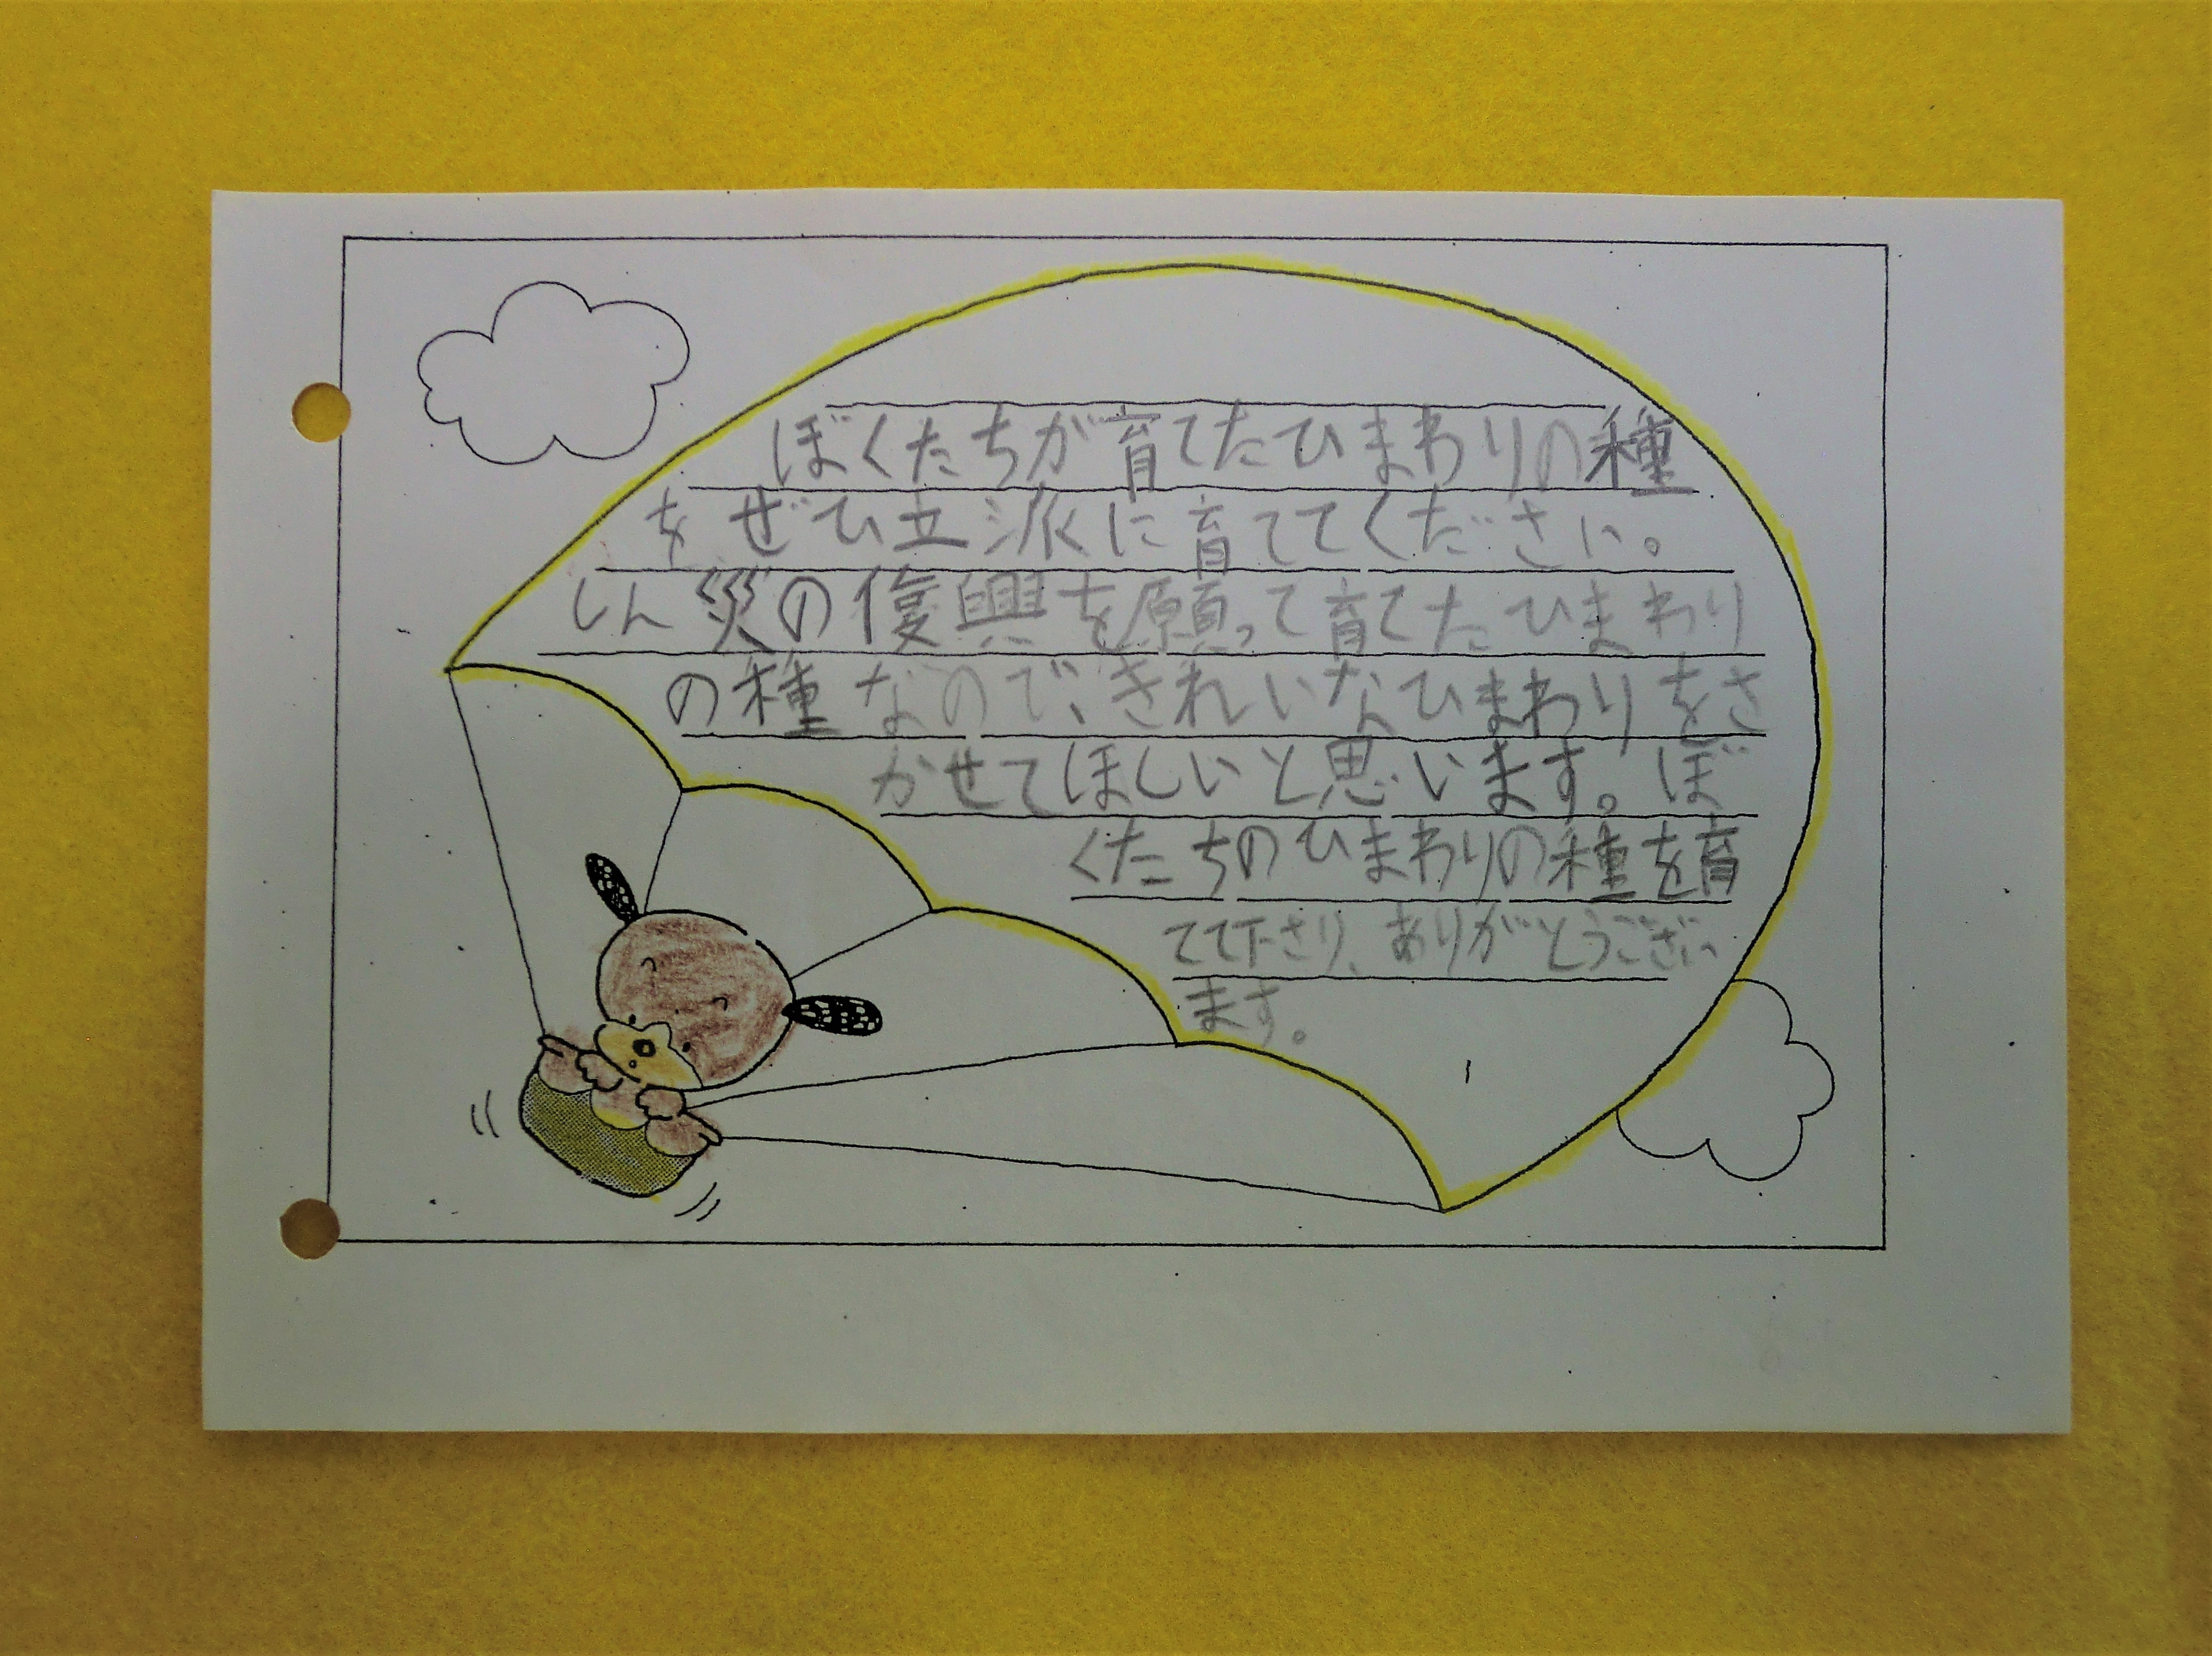 ぼくたちが育てたひまわりの種
をぜひ立派に育ててください。
しん災の復興を願って育てたひまわり
の種なので、きれいなひまわりをさ
かせてほしいと思います。ぼ
くたちのひまわりの種を育
てて下さり、ありがとうござい
ます。